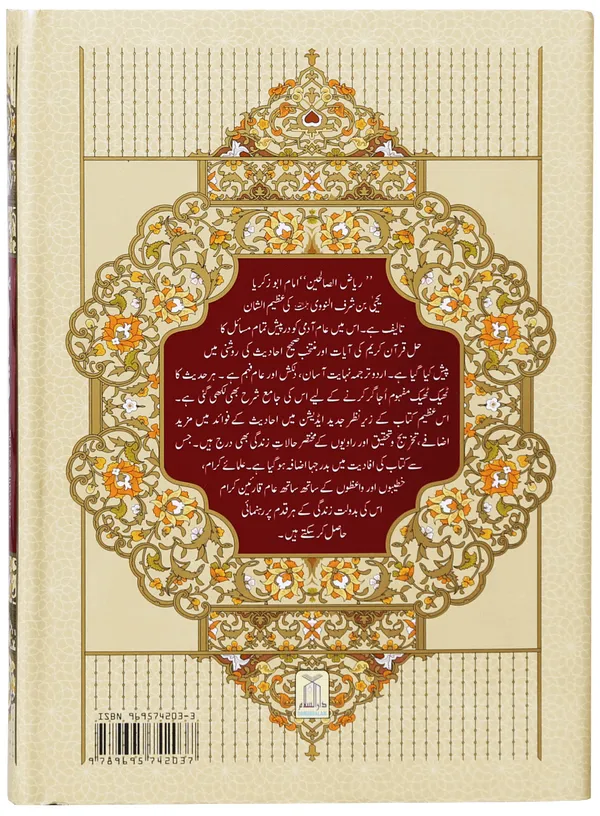 "ریاض الصالحین" امام ابو زکریا
یحییٰ بن شرف النووی رحمہ اللہ کی عظیم الشان
تالیف ہے۔ اس میں عام آدمی کو درپیش تمام مسائل کا
حل قرآن کریم کی آیات اور منتخب صحیح احادیث کی روشنی میں
پیش کیا گیا ہے۔ اردو ترجمہ نہایت آسان، دلکش اور عام فہم ہے۔ ہر حدیث کا
ٹھیک ٹھیک مفہوم اُجاگر کرنے کے لیے اس کی جامع شرح بھی لکھی گئی ہے۔
اس عظیم کتاب کے زیر نظر جدید ایڈیشن میں احادیث کے فوائد میں مزید
اضافے، تخریج و تحقیق اور راویوں کے مختصر حالاتِ زندگی بھی درج ہیں۔ جس
سے کتاب کی افادیت میں بدرجہا اضافہ ہو گیا ہے۔ علمائے کرام،
خطیبوں اور واعظوں کے ساتھ ساتھ عام قارئین کرام
اس کی بدولت زندگی کے ہر قدم پر رہنمائی
حاصل کر سکتے ہیں۔
دارالسلام
DARUSSALAM
ISBN 969574203-3
9 789695 742037